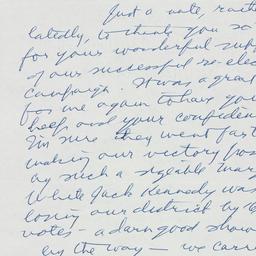 Just a note, rath
latedly, to thank you so
for your wonderful supp
of our successful re-elec
campaign. It was a great
for me again to have you
help and your confiden
I'm sure they went far t
making our victory pos
by such a sizeable mar
While Jack Kennedy was
losing our district by 6
votes - a darn good show
by the way - we carri